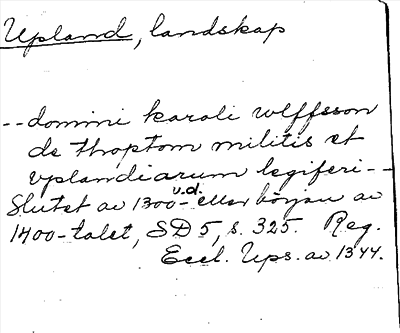 Upland, landskap
--domini karoli wlffsson
de thoptom militis et
vplandiarum legiferi--
Slutet av 1300- v.d. eller början av
1400-talet, SD 5, s. 325. Reg.
Eccl. Ups. av 1344.